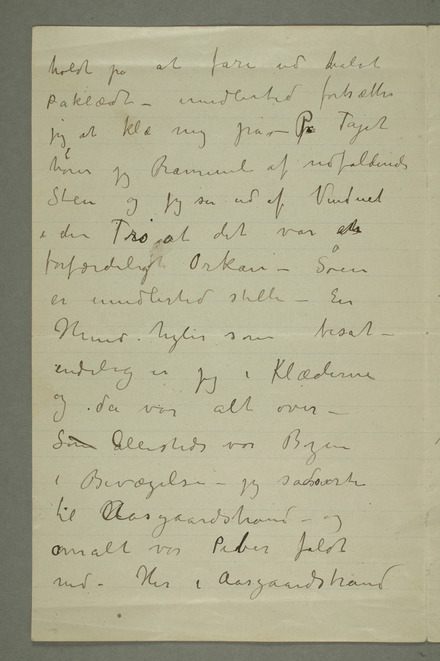 holdt på at fare ud halvt
paklædt – imidlertid fortsætter
jeg at klæ mig på – På Taget
hører jeg Brammel af nedfaldende
Sten og jeg ser ud af Vinduet
i den Tro at det var en
forfærdeligt Orkan – Søen
er imidlertid stille – En
Hund hyler som besat –
endelig er jeg i Klæderne
og da var alt over –
Som Allesteds var Byen
i Bevægelse – jeg
til Aasgaardstrand – og
overalt var Piber faldt
ned – Her i Aasgaardstrand